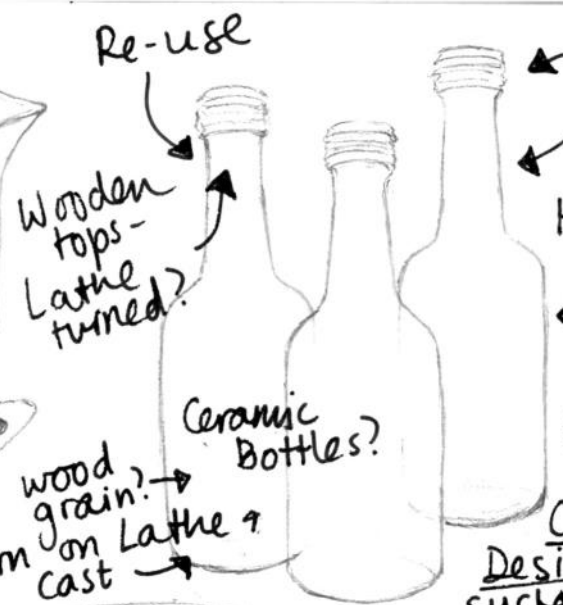 Re-use
Wooden
tops-
Lathe
turned?
Ceramic
Bottles?
wood
grain?
on Lathe &
cast